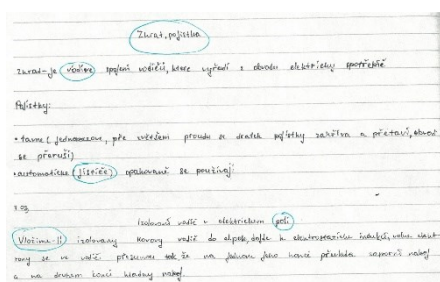 Zkrat, pojistka
Zkrat - je vodivé spojení vodičů, které vyřadí z obvodu elektrický spotřebič
Pojistky:
• tavné (jednorázové, při zvětšení proudu se drátek pojistky zahřívá a přetaví, obvod
se přeruší)
• automatické (jističe) opakovaně se používají
Izolovaný vodič v elektrickém poli
Vložíme-li izolovaný kovový vodič do el. pole, dojde k elektrostatické indukci, volné elekt
rony se ve vodiči přesunou tak, že na jednom jeho konci převládá záporný náboj
a na druhém konci kladný náboj.